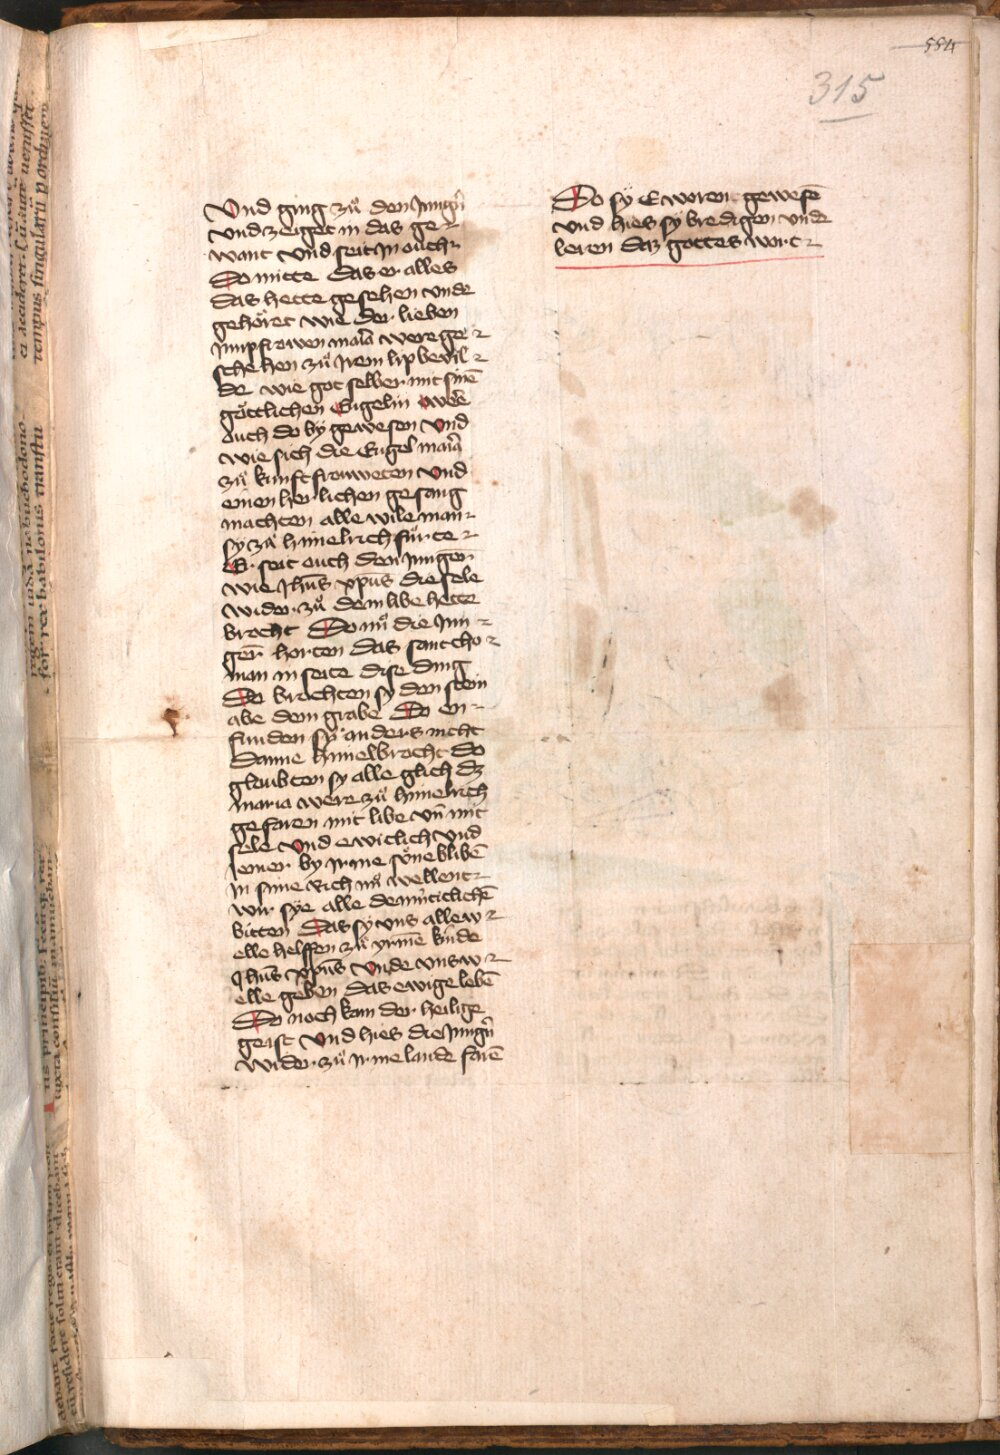 554
315
Vnd ging zuͦ den Jungn̄
vnd zeiget in das ge-
want vnd seit Jn ouch
Do mitte das er alles
das hette gesehen vnde
gehoͤret wie der lieben
Jungfrowen maīa were ge-
schehen zuͦ Jrem lip bevil-
de wie got selber mit sinē
goͤttlichen Engelin were
ouch do by gewesen vnd
wie sich die Engel maīa
zuͦ kunft frouweten vnd
einen herlichen gesang
machten alle wile man
sy zuͦ himelrich fuͦrte
Er seit ouch den Jungern
wie Jhūs xpūs die sele
wider zuͦ dem libe hette
brocht Do nuͦ die Jun-
gern̄ horten das sant tho-
man in seite dise ding
Do brochten sy den stein
abe dem grabe Do en-
funden sy anders nicht
danne himelbrocht do
gloubten sy alle glich dz
maria were zuͦ himelrich
gefaren mit libe vn̄ mit
sele vnd ewiclich vnd
Jemer by Jrme suͦne blibē
Jn sime rich nuͦ wellent
wir sye alle demuͤticlichē
bitten Das sy vns allew
elle helffen zuͦ yrmē kinde
Jhūs xpūs vnde vns w
elle geben das ewige lebē
Do noch kam der heilige
geist vnd hies die Jungn̄
wider zuͦ Jrme lande farē
Do sy E woren gewesē
vnd hies sy bredigen vnde
leren daz gottes wort